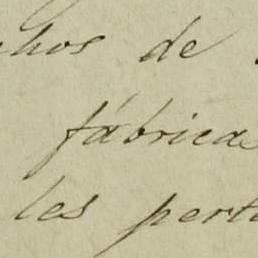 chos de
fábricas
les pert